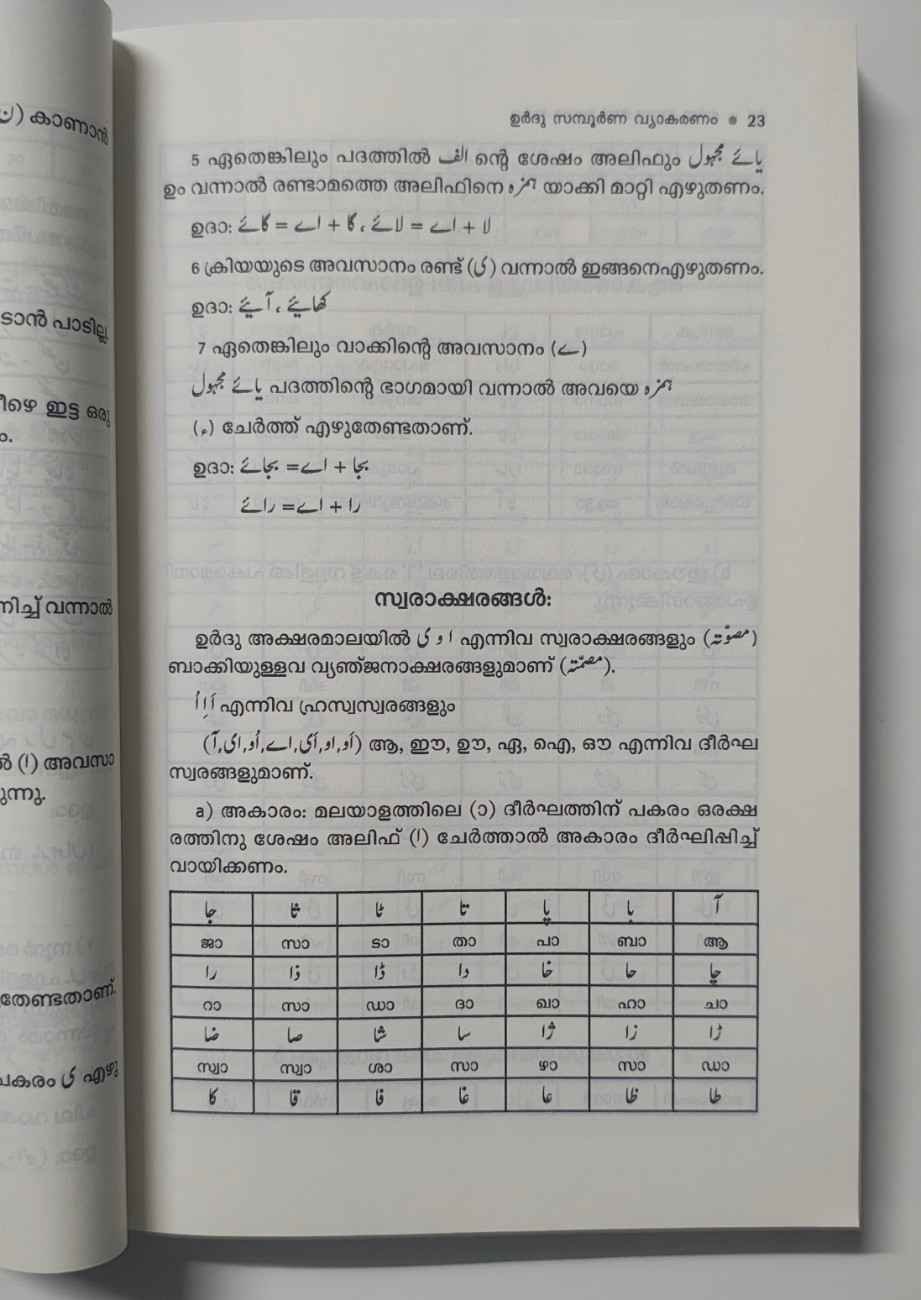 ഉർദു സമ്പൂർണ വ്യാകരണം ● 23
5 ഏതെങ്കിലും പദത്തിൽ الف ന്റെ ശേഷം അലിഫും یائے مجہول
ഉം വന്നാൽ രണ്ടാമത്തെ അലിഫിനെ ہمزہ യാക്കി മാറ്റി എഴുതണം.
ഉദാ: لا + اے = لائے، گا + اے = گائے
6 ക്രിയയുടെ അവസാനം രണ്ട് (ی) വന്നാൽ ഇങ്ങനെഎഴുതണം.
ഉദാ: کھائیے، آیئے
7 ഏതെങ്കിലും വാക്കിന്റെ അവസാനം (ے)
یائے مجہول പദത്തിന്റെ ഭാഗമായി വന്നാൽ അവയെ ہمزہ
(ء) ചേർത്ത് എഴുതേണ്ടതാണ്.
ഉദാ: بجا + اے = بجائے
را + اے = رائے
സ്വരാക്ഷരങ്ങൾ:
ഉർദു അക്ഷരമാലയിൽ ا و ی എന്നിവ സ്വരാക്ഷരങ്ങളും (مصوّتہ)
ബാക്കിയുള്ളവ വ്യഞ്ജനാക്ഷരങ്ങളുമാണ് (مصمّتہ).
اَ اِ اُ എന്നിവ ഹ്രസ്വസ്വരങ്ങളും
(آ, ای, اُو, اے, اَی, او, اَو) ആ, ഈ, ഊ, ഏ, ഐ, ഔ എന്നിവ ദീർഘ
സ്വരങ്ങളുമാണ്.
a) അകാരം: മലയാളത്തിലെ (ാ) ദീർഘത്തിന് പകരം ഒരക്ഷ
രത്തിനു ശേഷം അലിഫ് (ا) ചേർത്താൽ അകാരം ദീർഘിപ്പിച്ച്
വായിക്കണം.
آ با پا تا ٹا ثا جا
ജാ സാ ടാ താ പാ ബാ ആ
چا حا خا دا ڈا ذا را
റാ സാ ഡാ ദാ ഖാ ഹാ ചാ
ڑا زا ژا سا شا صا ضا
സ്വാ സ്വാ ശാ സാ ഴാ സാ ഡാ
طا ظا عا غا فا قا کا
(ن) കാണാൻ
ടാൻ പാടില്ല.
ഴെ ഇട്ട ഒരു
നിച്ച് വന്നാൽ
ൽ (ا) അവസാ
ുന്നു.
തേണ്ടതാണ്.
പകരം ی എഴു